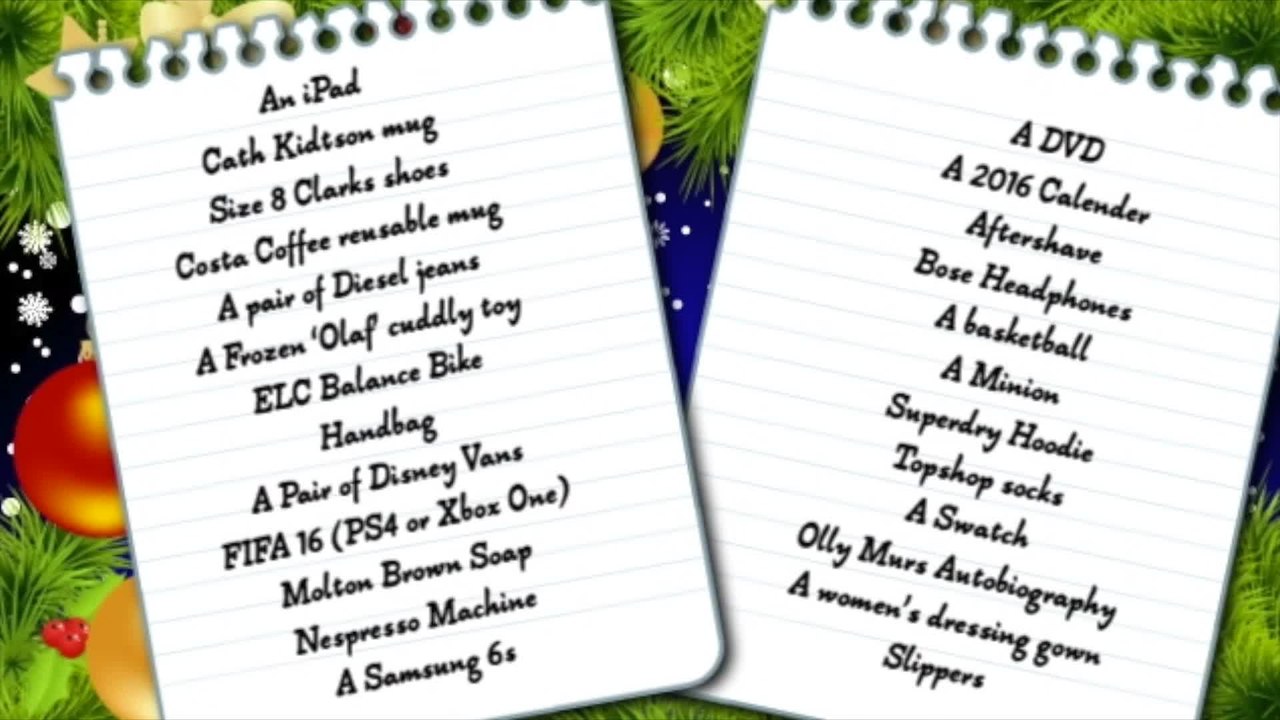 An iPad
Cath Kidtson mug
Size 8 Clarks shoes
Costa Coffee reusable mug
A pair of Diesel jeans
A Frozen ‘Olaf’ cuddly toy
ELC Balance Bike
Handbag
A Pair of Disney Vans
FIFA 16 (PS4 or Xbox One)
Molton Brown Soap
Nespresso Machine
A Samsung 6s
A DVD
A 2016 Calender
Aftershave
Bose Headphones
A basketball
A Minion
Superdry Hoodie
Topshop socks
A Swatch
Olly Murs Autobiography
A women's dressing gown
Slippers